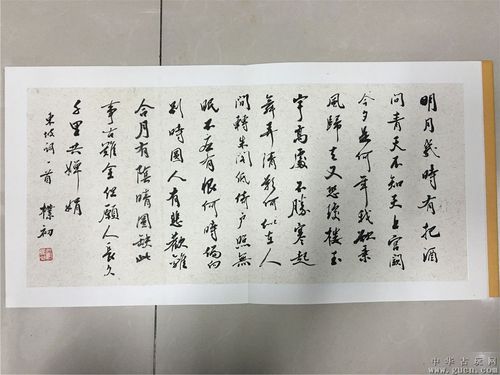 明月幾時有把酒
問青天不知天上宮闕
今夕是何年我欲乘
風歸去又恐瓊樓玉
宇高處不勝寒起
舞弄清影何似在人
間轉朱閣低綺戶照無
眠不應有恨何時偏向
別時圓人有悲歡離
合月有陰晴圓缺此
事古難全但願人長久
千里共嬋娟
東坡詞一首 樸初
中华古玩网
www.gucn.com